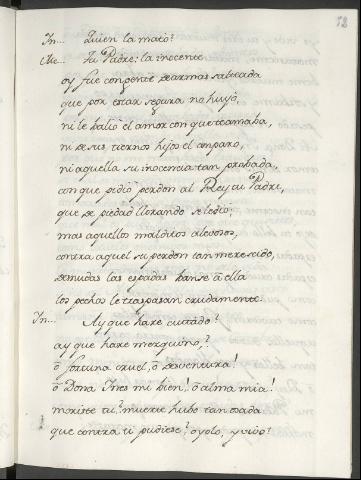 52
In... Quien la mato?
Me... Tu Padre: la inocente
oy fue con gente de armas salteada
que por estar segura no huyó,
ni le balió el amor con que te amaba,
ni de sus tiernos hijos el amparo,
ni aquella su inocencia tan probada,
con que pidió perdon al Rey tu Padre,
que de piedad llorando se le dió;
mas aquellos malditos alevosos,
contra aquel su perdon tan merecido,
desnudas las espadas banse á ella
los pechos le traspasan crudamente.
In... Ay que haré cuitado?
ay que haré mezquino,?
ó fortuna cruel, ó desventura!
ó Dona Ines mi bien! ó alma mia!
moriste tu? muerte hubo tan osada
que contra ti pudiese? oyolo, y vivo?